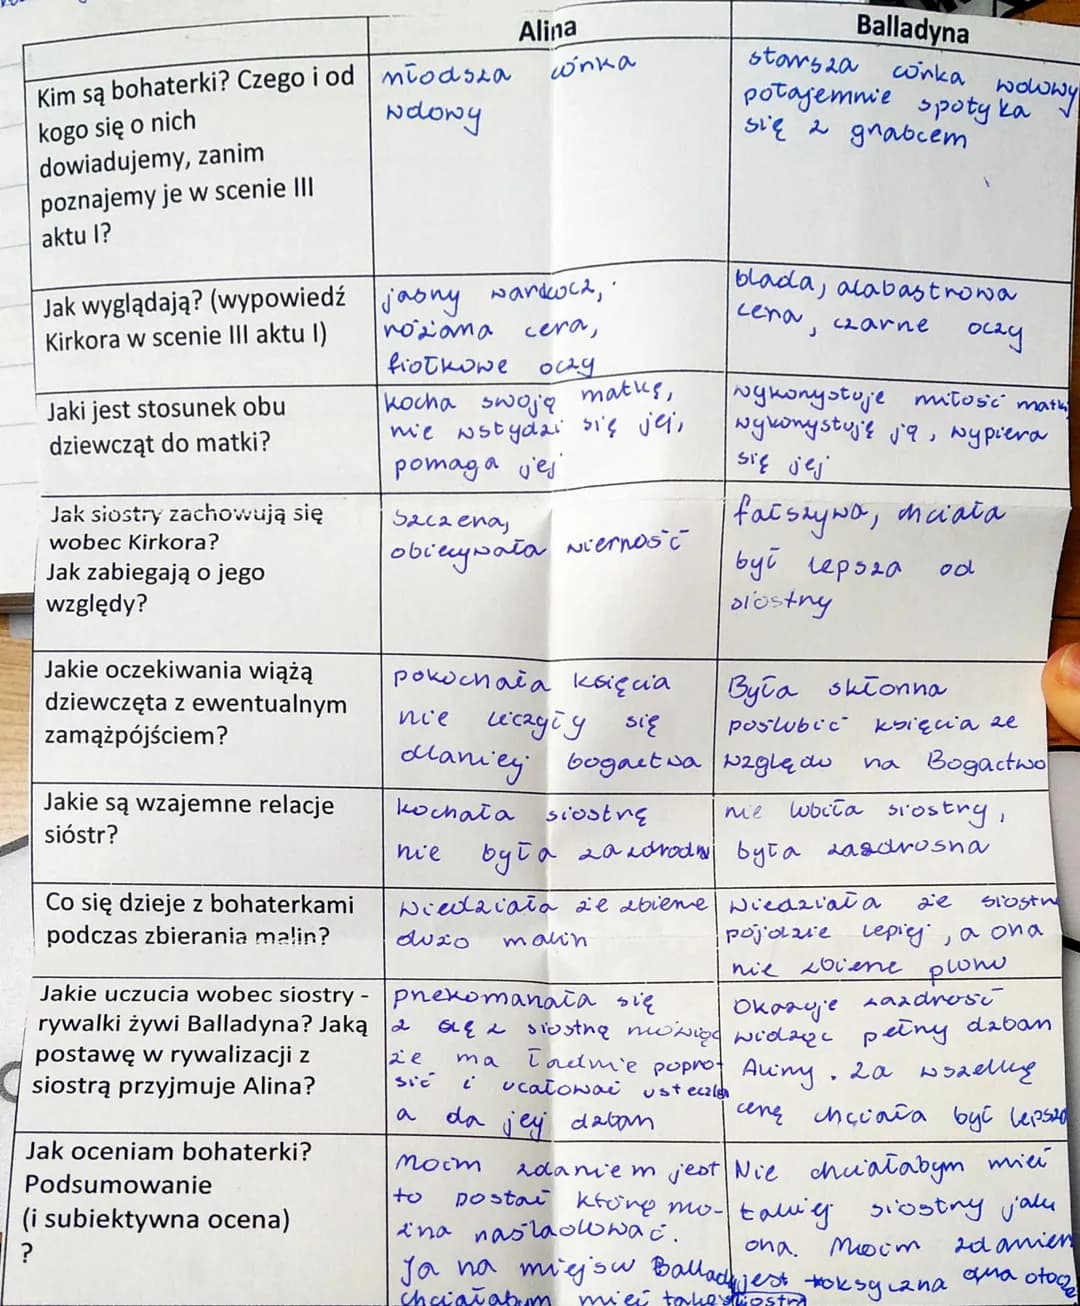 Alina
Balladyna
Kim są bohaterki? Czego i od
kogo się o nich
dowiadujemy, zanim
poznajemy je w scenie III
aktu I?
młodsza córka
wdowy
starsza córka wdowy
potajemnie spotyka
się z grabcem
Jak wyglądają? (wypowiedź
Kirkora w scenie III aktu I)
jasny warkocz,
różana cera,
fiołkowe oczy
blada, alabastrowa
cera, czarne oczy
Jaki jest stosunek obu
dziewcząt do matki?
kocha swoję matkę,
nie wstydzi się jej,
pomaga jej
wykorzystuje miłość matki
wykorzystuję ją, wypiera
się jej
Jak siostry zachowują się
wobec Kirkora?
Jak zabiegają o jego
względy?
Szczera,
obiecywała wierność
fałszywa, chciała
być lepsza od
siostry
Jakie oczekiwania wiążą
dziewczęta z ewentualnym
zamążpójściem?
pokochała księcia
nie liczyły się
dlaniej bogactwa
Była skłonna
poślubić księcia ze
względu na Bogactwo
Jakie są wzajemne relacje
sióstr?
kochała siostrę
nie była zazdrodn
nie lubiła siostry,
była zazdrosna
Co się dzieje z bohaterkami
podczas zbierania malin?
Wiedziała że zbierze
dużo malin
Wiedziała że siostrze
pójdzie lepiej, a ona
nie zbierze plonu
Jakie uczucia wobec siostry -
rywalki żywi Balladyna? Jaką
postawę w rywalizacji z
siostrą przyjmuje Alina?
przekomarzała się
z siostrą mówiąc
że ma ładnie popro-
sić i ucałować usteczka
a da jej dzban
Okazuje zazdrość
widząc pełny dzban
Aliny. Za wszelkę
cenę chciała być lepsza
Jak oceniam bohaterki?
Podsumowanie
(i subiektywna ocena)
?
Moim zdaniem jest
to postać którę mo-
żna naśladować.
Ja na miejscu Ballady
chciałabym mieć taką siostrę
Nie chciałabym mieć
takiej siostry jak
ona. Moim zdaniem
jest toksyczna dla otocze